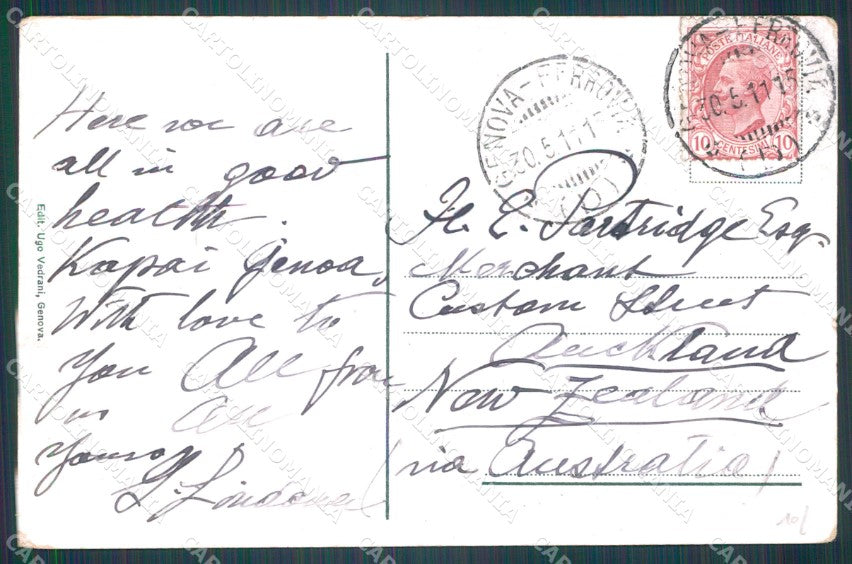 Here we are
all in good
health.
Kapai Genoa,
With love to
you All from
us All
Yours
Edit. Ugo Vedrani, Genova.
GENOVA-FERROVIA
30.5.11.15
(D)
POSTE ITALIANE
CENTESIMI
10 10
GENOVA-FERROVIA
30.5.11 15
H. E. Partridge Esq.
Merchant
Custom Street
Auckland
New Zealand
(via Australia)
10/
CARTOLINOMANIA